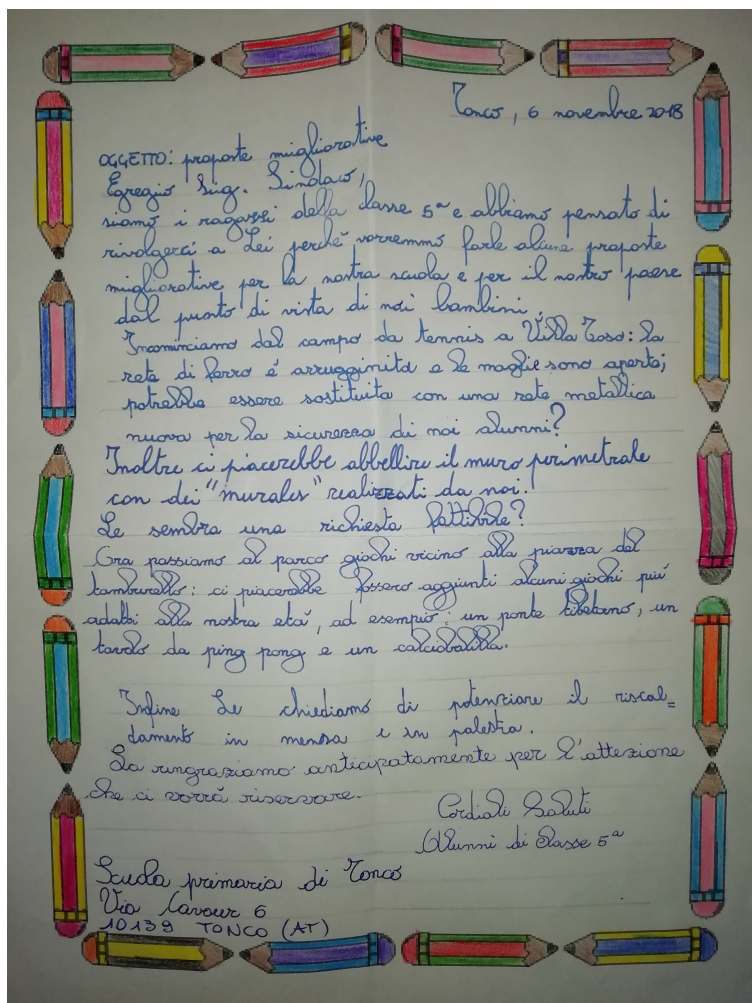 Tonco, 6 novembre 2018
OGGETTO: proposte migliorative
Egregio Sig. Sindaco,
siamo i ragazzi della classe 5ª e abbiamo pensato di
rivolgerci a Lei perché vorremmo farle alcune proposte
migliorative per la nostra scuola e per il nostro paese
dal punto di vista di noi bambini.
Incominciamo dal campo da tennis a Villa Toso: la
rete di ferro é arrugginita e le maglie sono aperte;
potrebbe essere sostituita con una rete metallica
nuova per la sicurezza di noi alunni?
Inoltre ci piacerebbe abbellire il muro perimetrale
con dei "murales" realizzati da noi.
Le sembra una richiesta fattibile?
Ora passiamo al parco giochi vicino alla piazza del
tamburello: ci piacerebbe fossero aggiunti alcuni giochi piú
adatti alla nostra etá, ad esempio: un ponte tibetano, un
tavolo da ping pong e un calciobalilla.
Infine Le chiediamo di potenziare il riscal=
damento in mensa e in palestra.
La ringraziamo anticipatamente per l'attezione
che ci vorrá riservare.
Cordiali Saluti
Alunni di classe 5ª
Scuola primaria di Tonco
Via Cavour 6
10139 TONCO (AT)